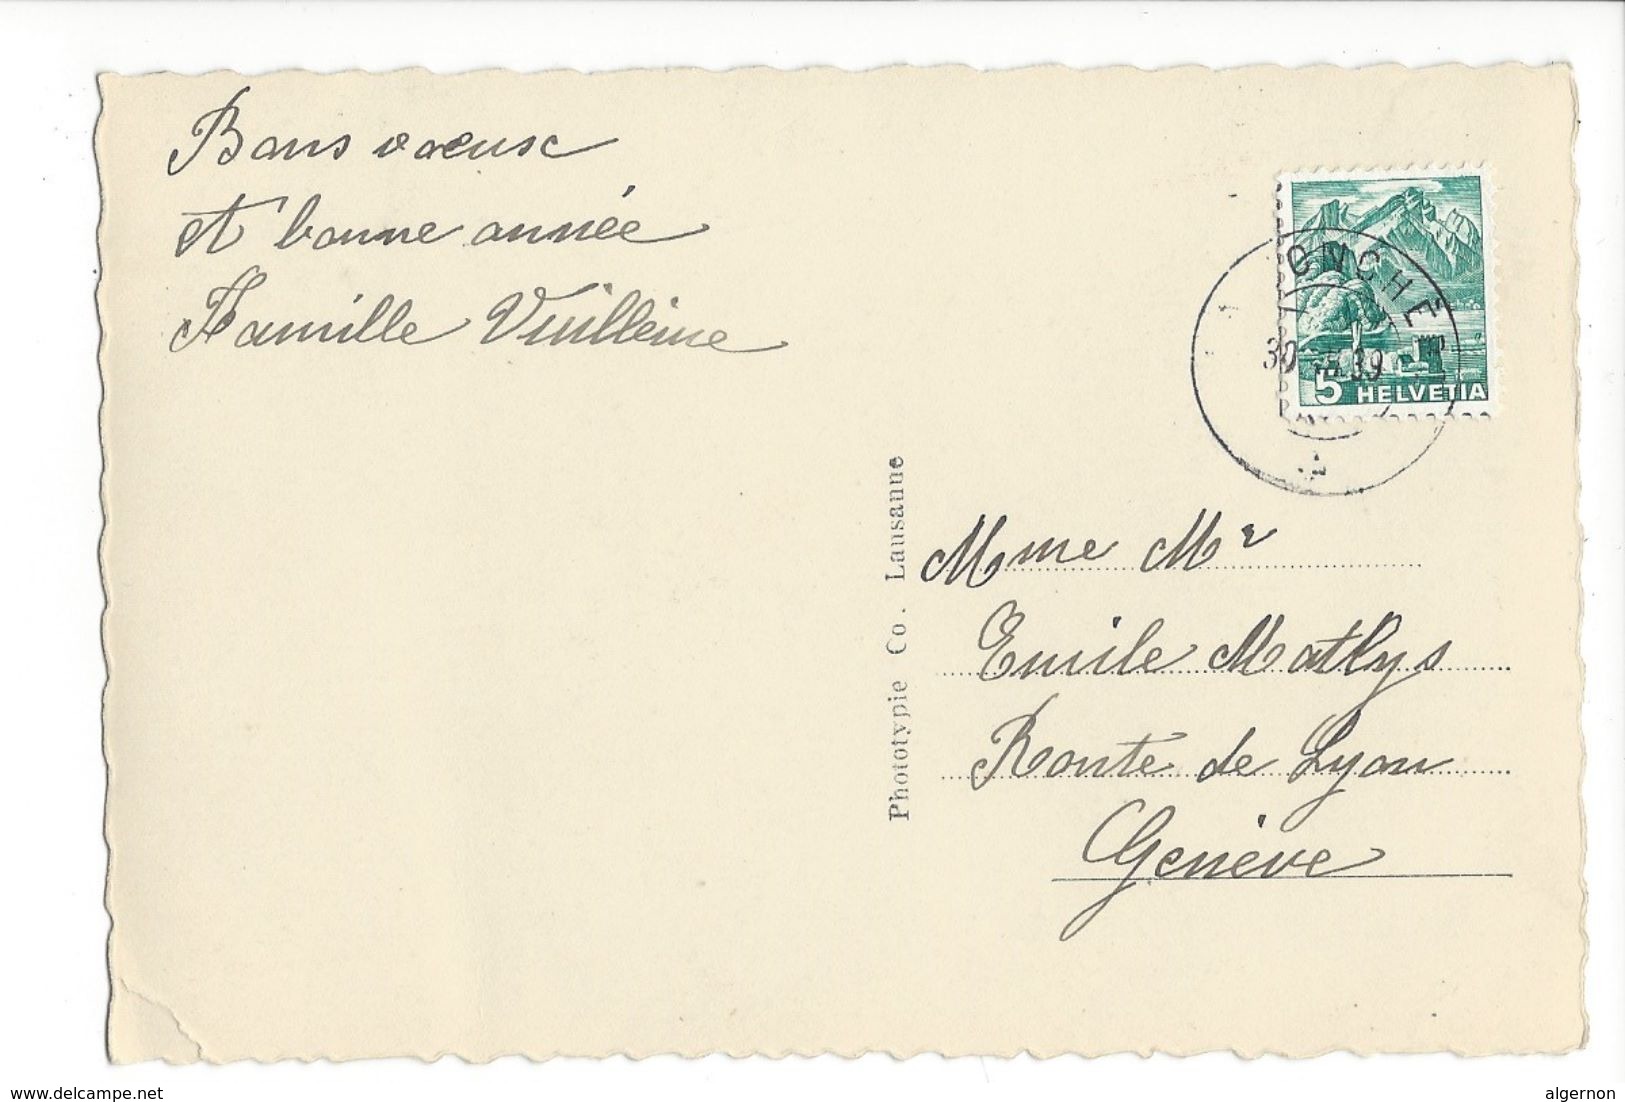 Bons voeux
et bonne année
Famille Vuilleime
ONCHE
30 39
5 HELVETIA
Phototypie Co. Lausanne
Mme Mr
Emile Mathys
Route de Lyon
Genève
www.delcampe.net
algernon